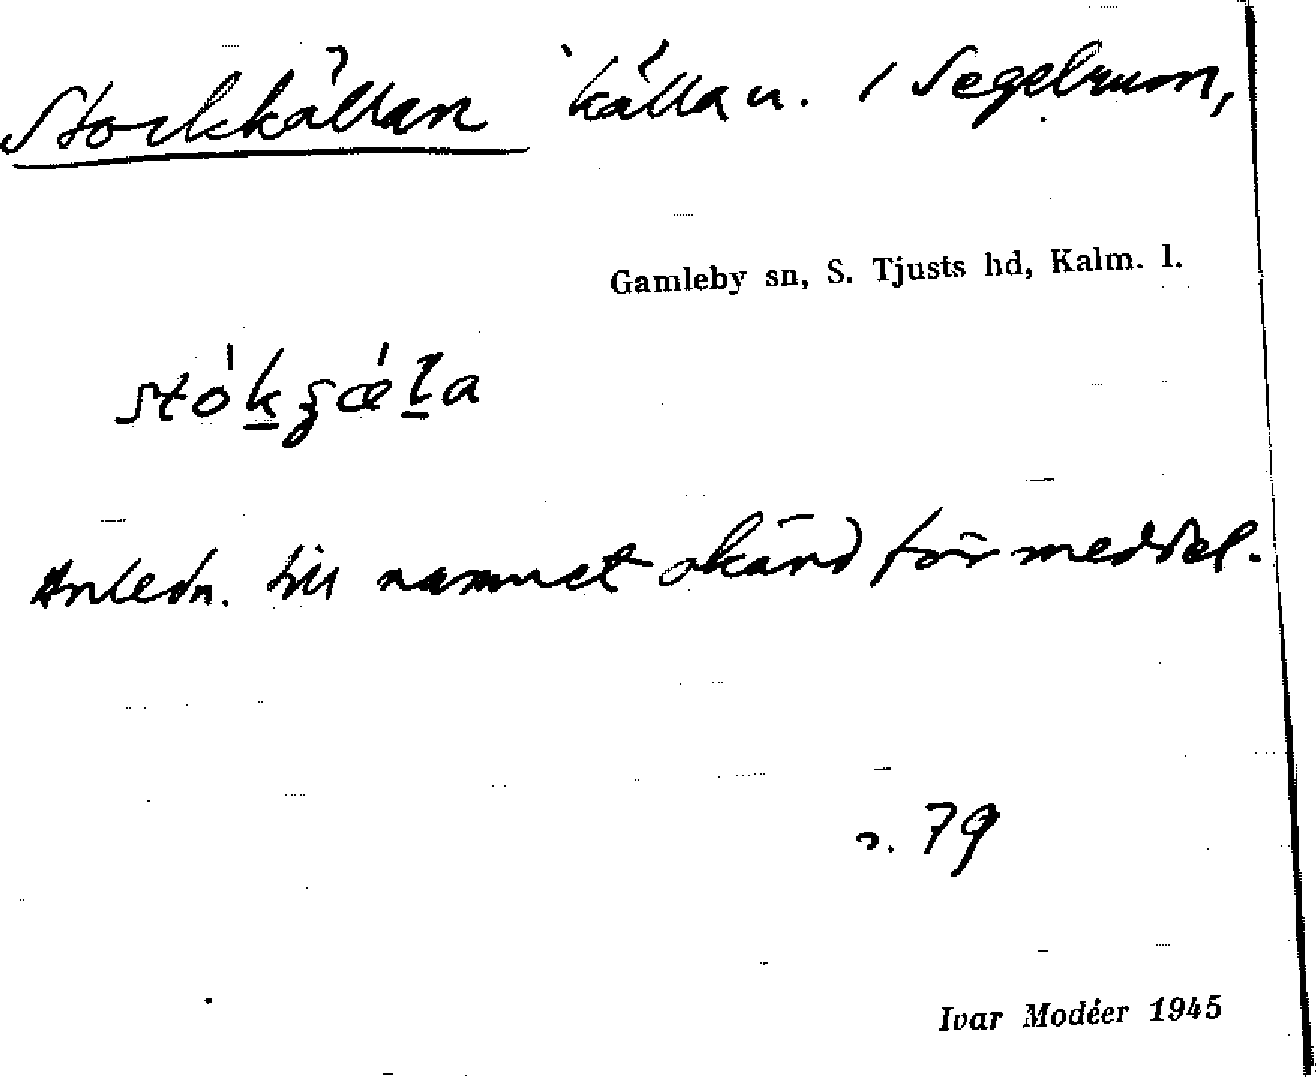 Stockkällan källa n. i Segelrum,
Gamleby sn, S. Tjusts hd, Kalm. l.
Anledn. till namnet okänd för meddel.
s. 79
Ivar Modéer 1945